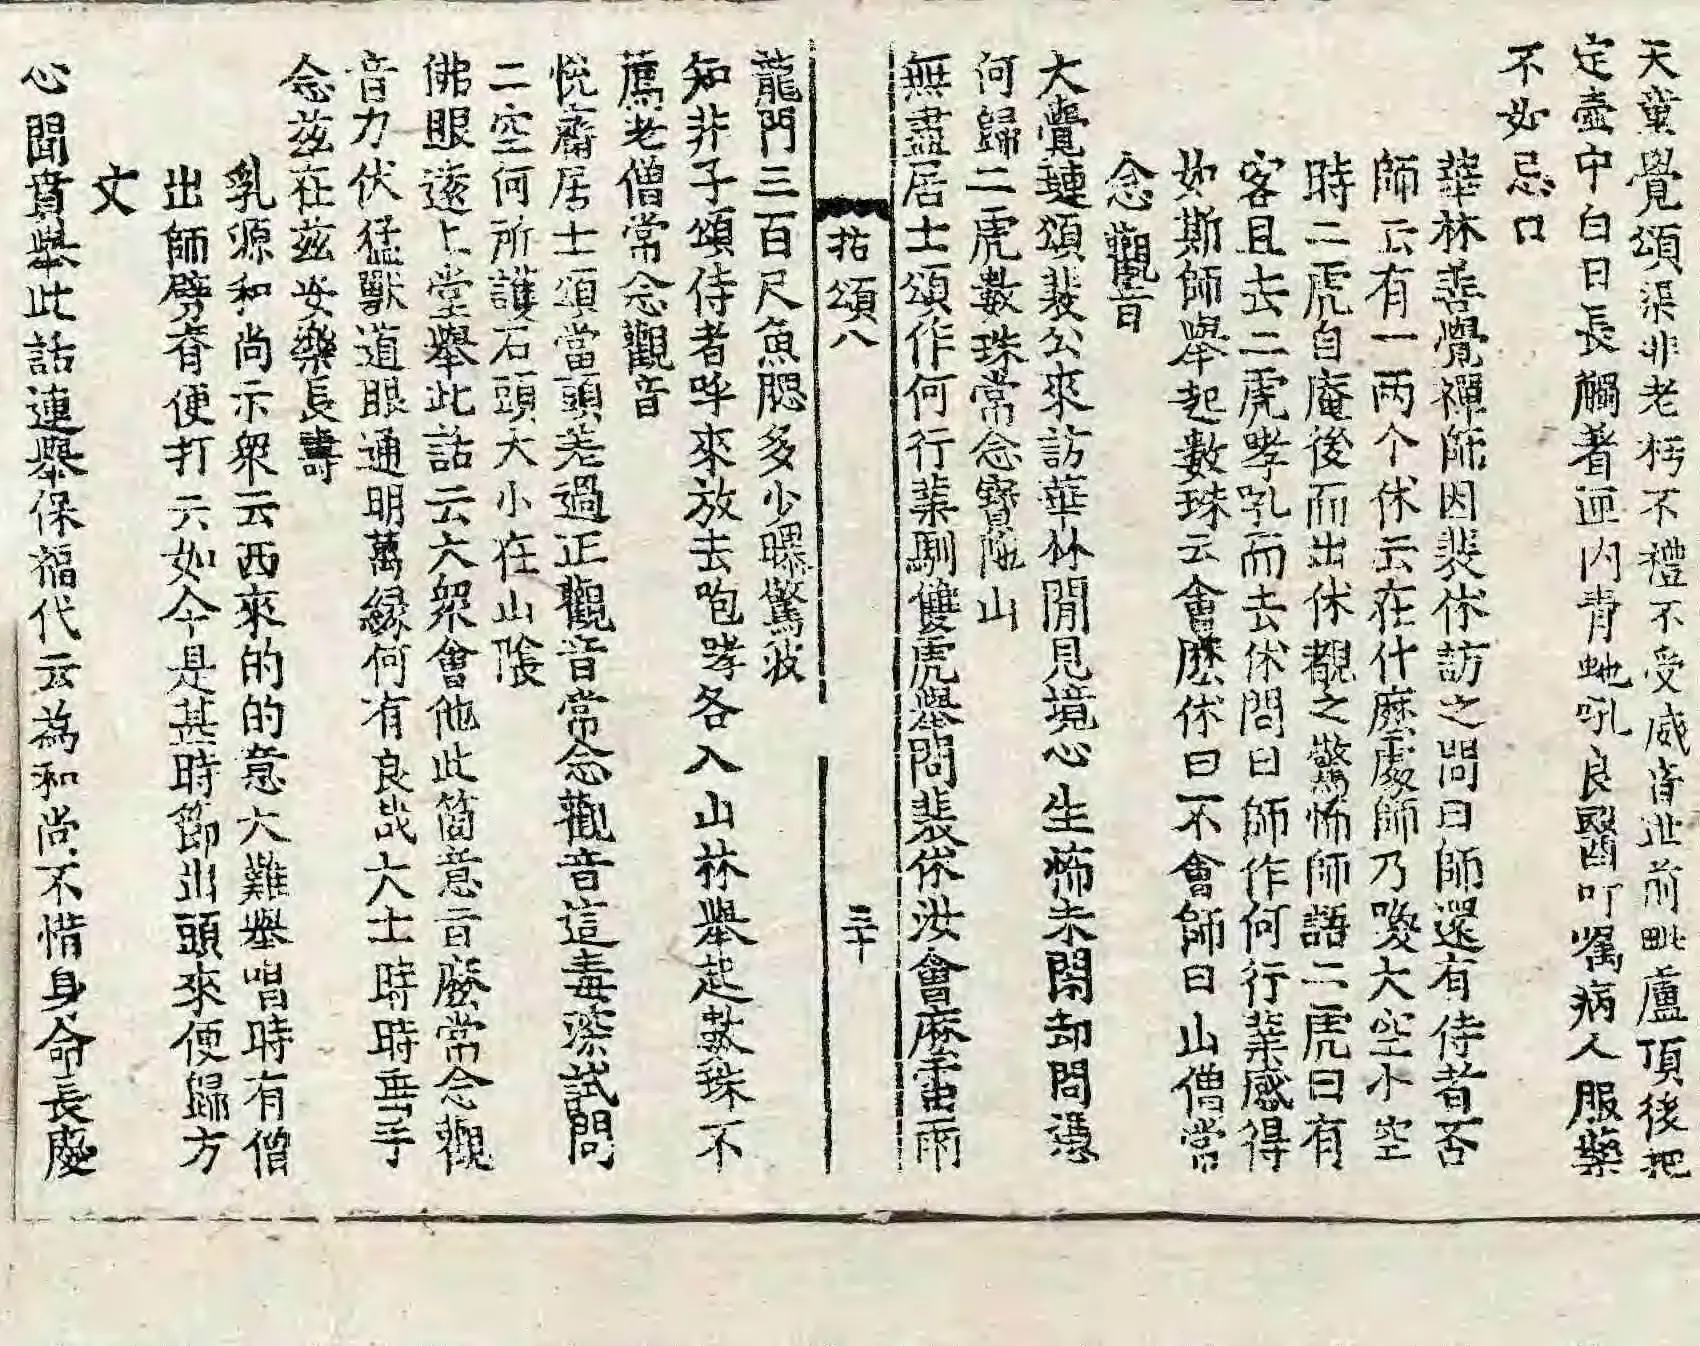 天童覺頌渠非老杇不禮不受威音世前毗盧頂後把
定壺中白日長觸著匣内青虵吼良醫叮嘱病人服藥
不必忌口
華林善覺禪師因裴休訪之問曰師還有侍者否
師云有一兩个休云在什麽處師乃喚大空小空
時二虎自庵後而出休覩之驚怖師語二虎曰有
客且去二虎哮吼而去休問曰師作何行業感得
如斯師舉起數珠云會麽休曰不會師曰山僧常
念觀音
大覺璉頌裴公來訪華林閒見境心生怖未閑却問憑
何歸二虎數珠常念寶陁山
無盡居士頌作何行業馴雙虎舉問裴休汝會麽雷雨
拈頌八
三十
龍門三百尺魚腮多少曝驚波
知非子頌侍者呼來放去咆哮各入山林舉起數珠不
薦老僧常念觀音
悅齋居士頌當頭差過正觀音常念觀音這毒深試問
二空何所護石頭大小在山陰
佛眼遠上堂舉此話云大衆會他此箇意旨麽常念觀
音力伏猛獸道眼通明萬緣何有良哉大士時時垂手
念兹在兹安樂長壽
乳源和尚示衆云西來的的意大難舉唱時有僧
出師劈脊便打云如今是甚時節出頭來便歸方
丈
心聞賁舉此話連舉保福代云爲和尚不惜身命長慶